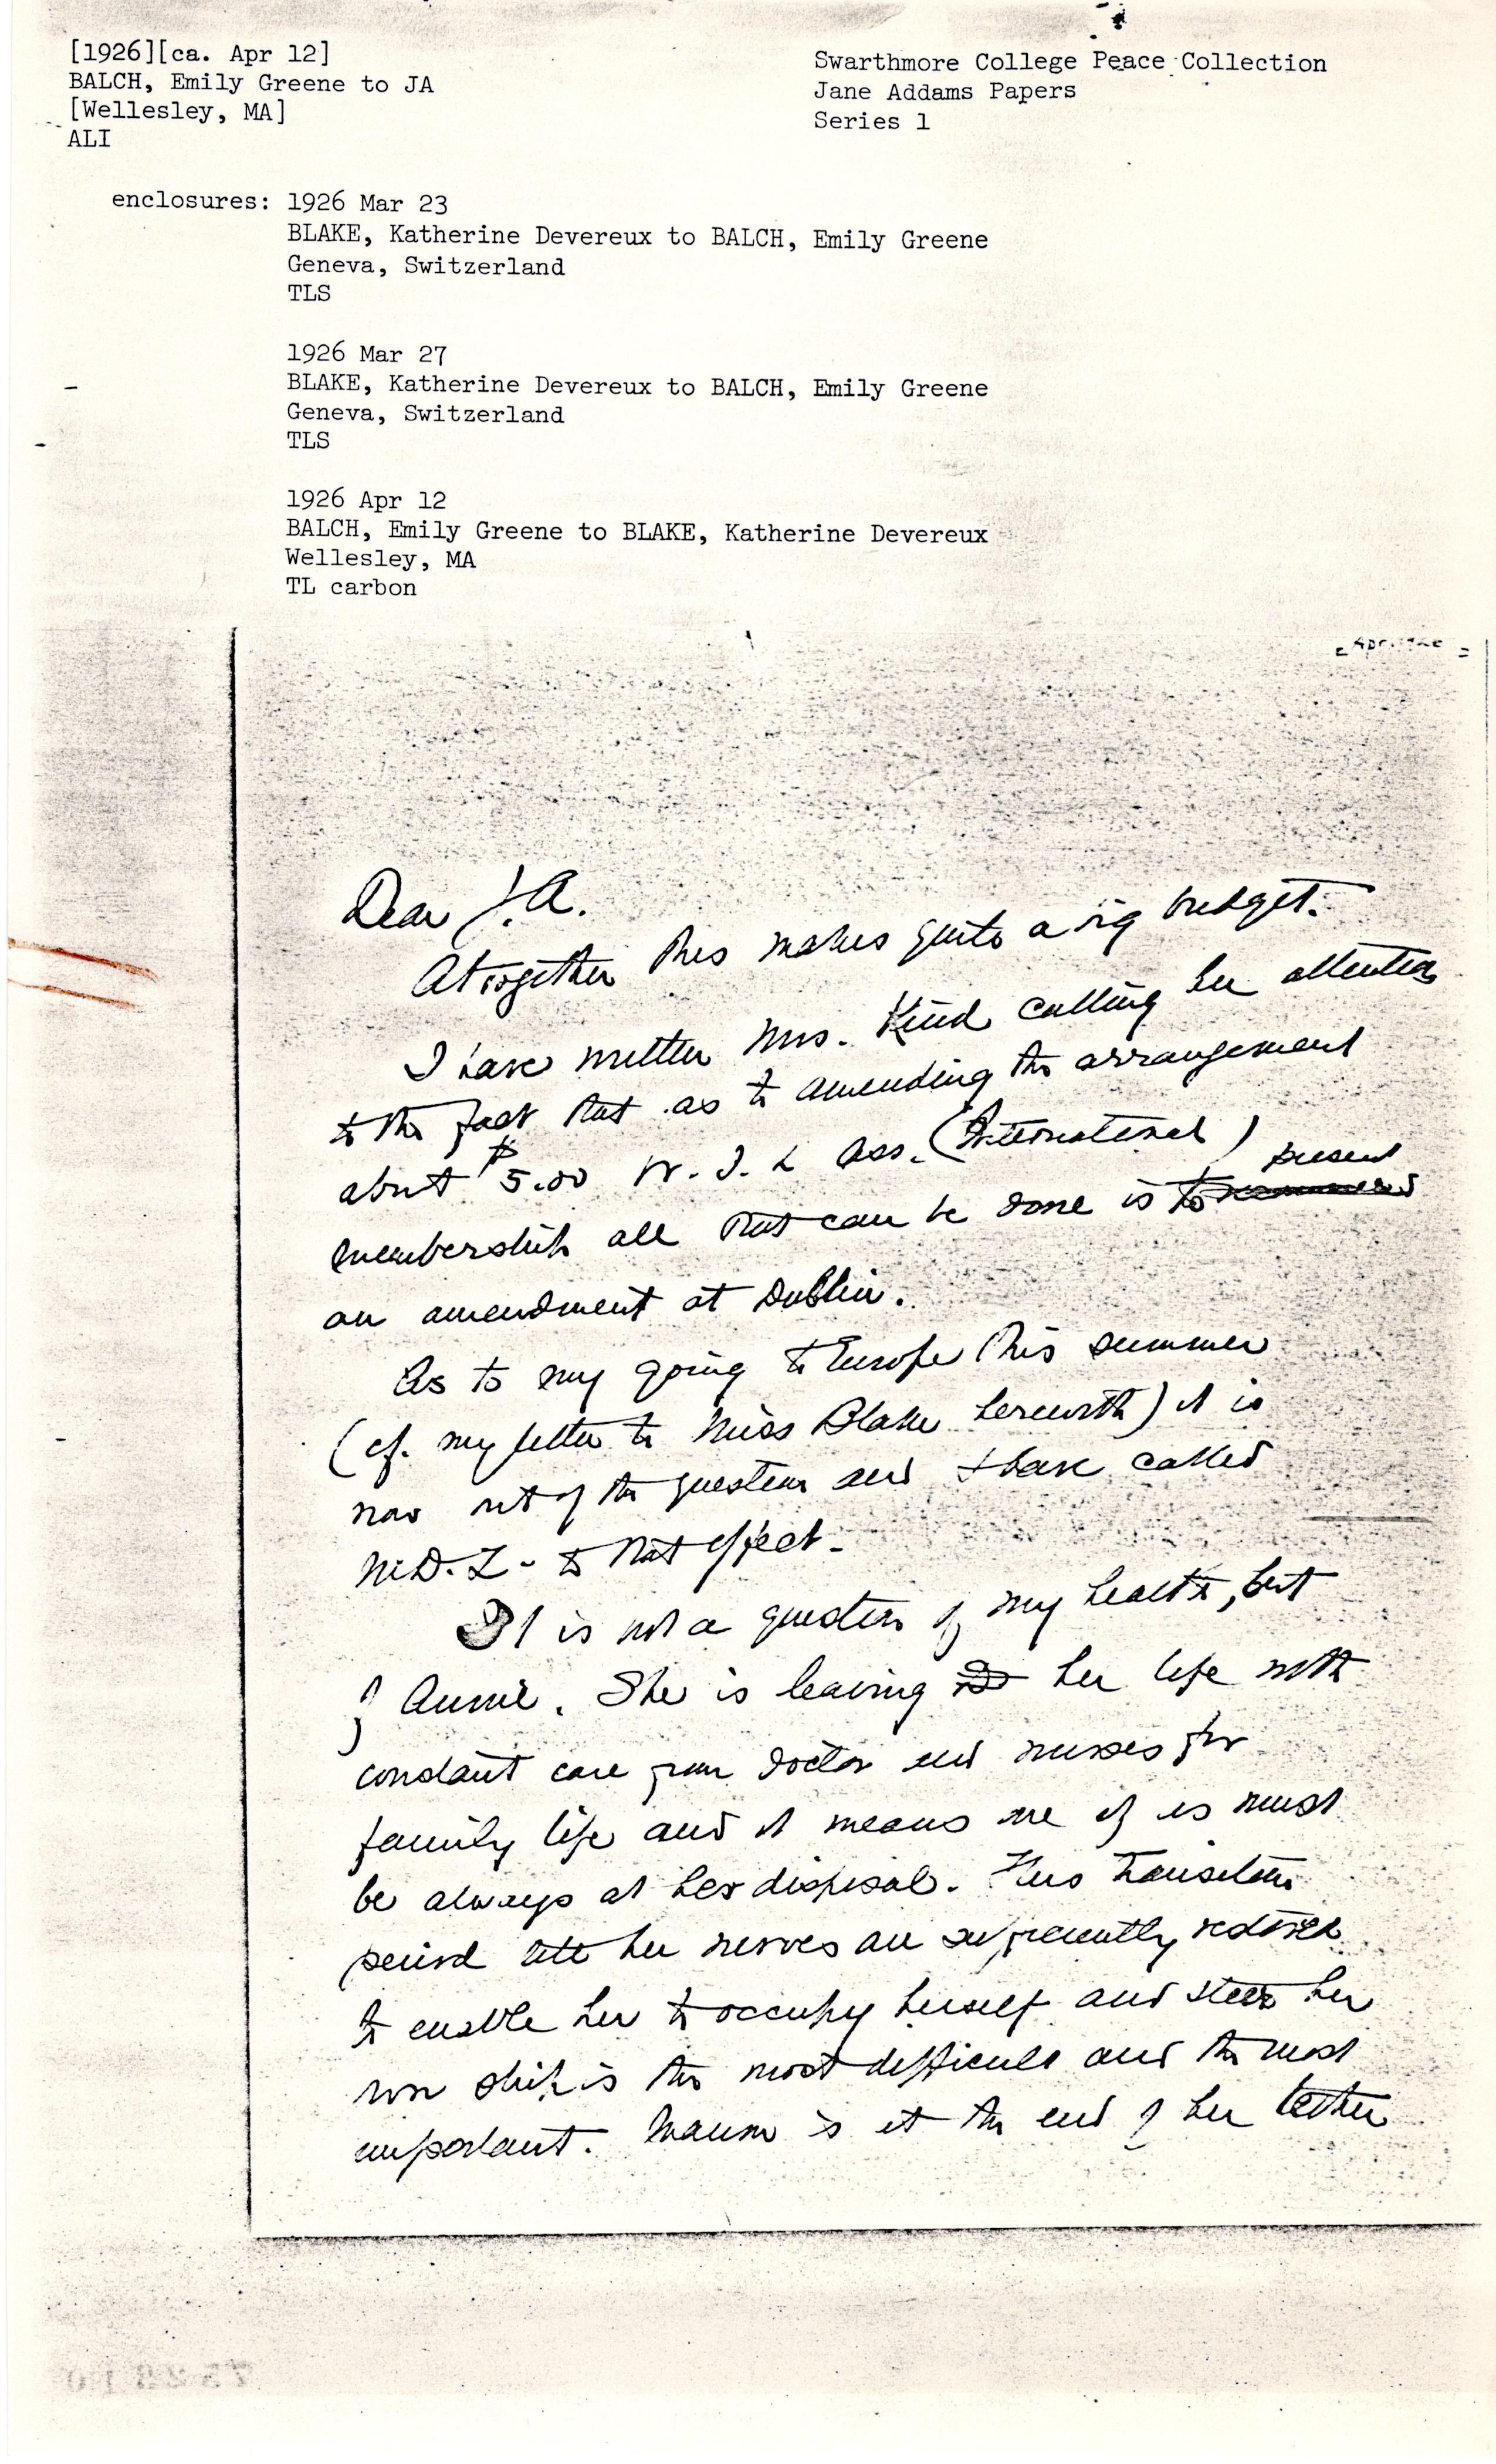 [1926][ca. Apr 12]
BALCH, Emily Greene to JA
[Wellesley, MA]
ALI
Swarthmore College Peace Collection
Jane Addams Papers
Series 1
enclosures: 1926 Mar 23
BLAKE, Katherine Devereux to BALCH, Emily Greene
Geneva, Switzerland
TLS
1926 Mar 27
BLAKE, Katherine Devereux to BALCH, Emily Greene
Geneva, Switzerland
TLS
1926 Apr 12
BALCH, Emily Greene to BLAKE, Katherine Devereux
Wellesley, MA
TL carbon
Dear J.A.
Altogether this makes quite a big budget.
I have written Mrs. calling her attention
to the fact that as to amending the arrangement
about $5.00 W. I. L Ass. (International)
membership all that can be done is to present
an amendment at Dublin.
As to my going to Europe this summer
(cf. my letter to Miss Blake herewith) it is
now out of the question and I have called
M.D. to that effect.
It is not a question of my health, but
of Annie. She is leaving her life with
constant care from doctor and nurses for
family life and it means one of us must
be always at her disposal. This transition
period till her nerves are sufficiently restored
to enable her to occupy herself and steer her
own ship is the most difficult and the most
important. is at the end of her tether